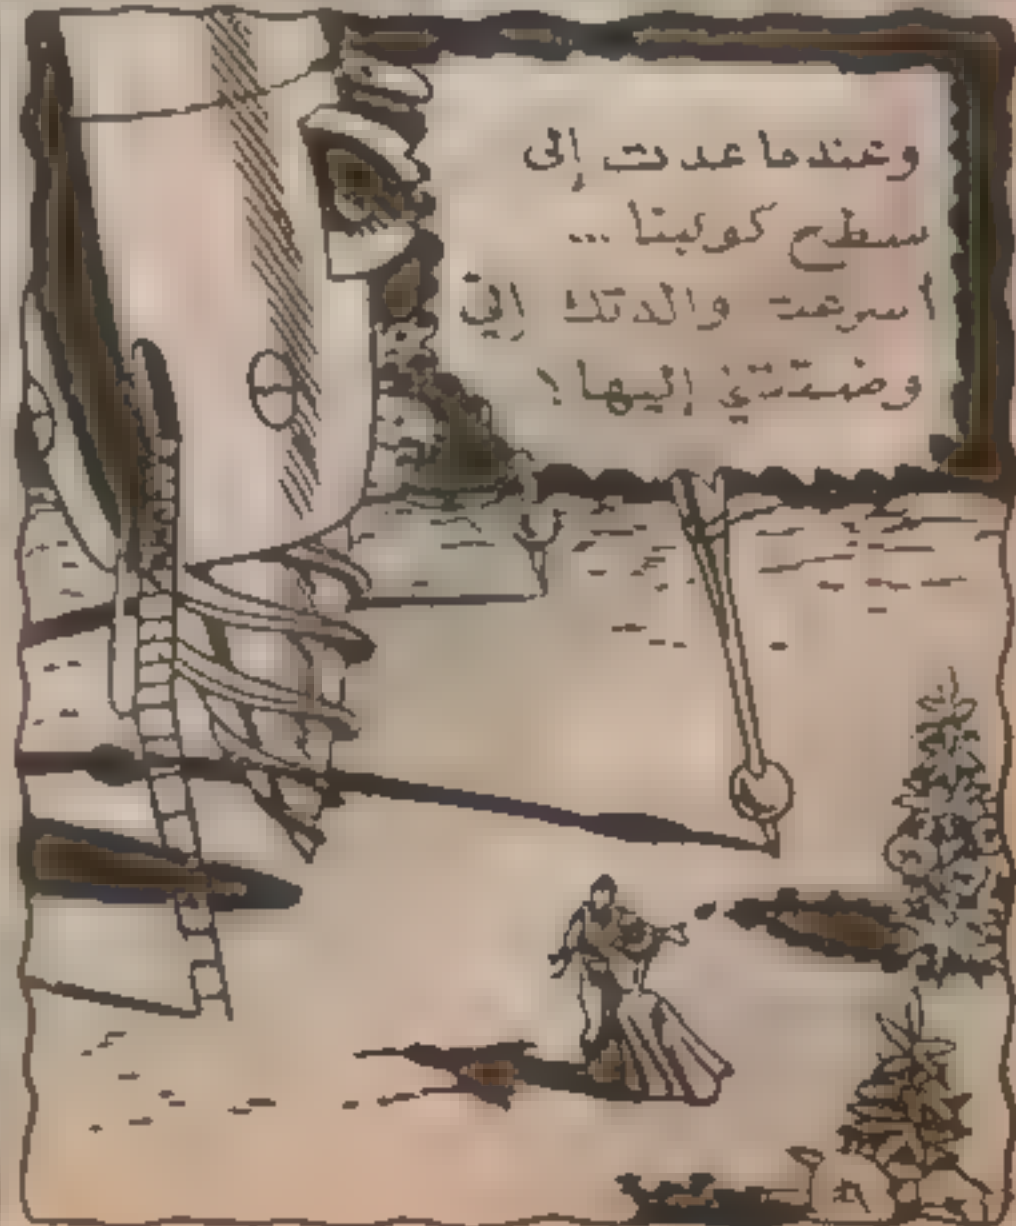 وعندما عدت إلى
سطح كوكبنا ...
أسرعت والدتك إلي
وضمتني إليها !